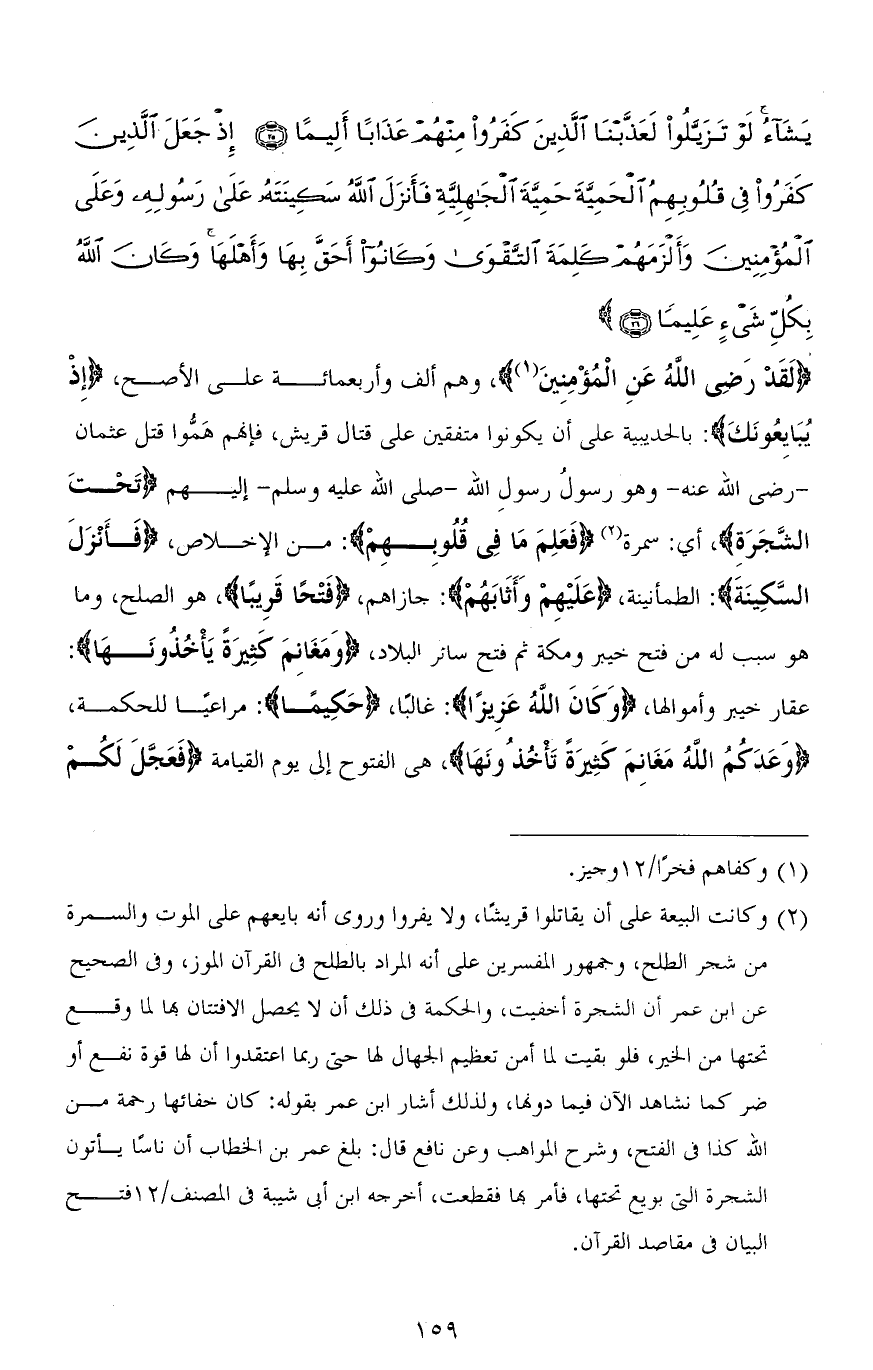 يَشَآءُۚ لَوۡ تَزَيَّلُواْ لَعَذَّبۡنَا ٱلَّذِينَ كَفَرُواْ مِنۡهُمۡ عَذَابًا أَلِيمًا ٢٥ إِذۡ جَعَلَ ٱلَّذِينَ
كَفَرُواْ فِي قُلُوبِهِمُ ٱلۡحَمِيَّةَ حَمِيَّةَ ٱلۡجَٰهِلِيَّةِ فَأَنزَلَ ٱللَّهُ سَكِينَتَهُۥ عَلَىٰ رَسُولِهِۦ وَعَلَى
ٱلۡمُؤۡمِنِينَ وَأَلۡزَمَهُمۡ كَلِمَةَ ٱلتَّقۡوَىٰ وَكَانُوٓاْ أَحَقَّ بِهَا وَأَهۡلَهَاۚ وَكَانَ ٱللَّهُ
بِكُلِّ شَيۡءٍ عَلِيمٗا ٢٦ ﴾
﴿لَقَدْ رَضِى اللَّهُ عَنِ الْمُؤْمِنِينَ(١)﴾، وهم ألف وأربعمائة على الأصح، ﴿إِذْ
يُبَايِعُونَكَ﴾: بالحديبية على أن يكونوا متفقين على قتال قريش، فإنهم هَمُّوا قتل عثمان
-رضى الله عنه- وهو رسولُ رسول الله -صلى الله عليه وسلم- إليهم ﴿تَحْتَ
الشَّجَرَةِ﴾، أي: سمرة(٢) ﴿فَعَلِمَ مَا فِى قُلُوبِهِمْ﴾: من الإخلاص، ﴿فَأَنْزَلَ
السَّكِينَةَ﴾: الطمأنينة، ﴿عَلَيْهِمْ وَأَثَابَهُمْ﴾: جازاهم، ﴿فَتْحًا قَرِيبًا﴾، هو الصلح، وما
هو سبب له من فتح خيبر ومكة ثم فتح سائر البلاد، ﴿وَمَغَانِمَ كَثِيرَةً يَأْخُذُونَهَا﴾:
عقار خيبر وأموالها، ﴿وَكَانَ اللَّهُ عَزِيزًا﴾: غالبًا، ﴿حَكِيمًا﴾: مراعيًا للحكمة،
﴿وَعَدَكُمُ اللَّهُ مَغَانِمَ كَثِيرَةً تَأْخُذُونَهَا﴾، هى الفتوح إلى يوم القيامة ﴿فَعَجَّلَ لَكُمْ
(١) وكفاهم فخرًا/١٢وجيز.
(٢) وكانت البيعة على أن يقاتلوا قريشًا، ولا يفروا وروى أنه بايعهم على الموت والسمرة
من شجر الطلح، وجمهور المفسرين على أنه المراد بالطلح فى القرآن الموز، وفى الصحيح
عن ابن عمر أن الشجرة أخفيت، والحكمة فى ذلك أن لا يحصل الافتتان بها لما وقع
تحتها من الخير، فلو بقيت لما أمن تعظيم الجهال لها حتى ربما اعتقدوا أن لها قوة نفع أو
ضر كما نشاهد الآن فيما دونها، ولذلك أشار ابن عمر بقوله: كان خفائها رحمة من
الله كذا فى الفتح، وشرح المواهب وعن نافع قال: بلغ عمر بن الخطاب أن ناسًا يأتون
الشجرة التى بويع تحتها، فأمر بها فقطعت، أخرجه ابن أبى شيبة فى المصنف/١٢فتح
البيان فى مقاصد القرآن.
١٥٩